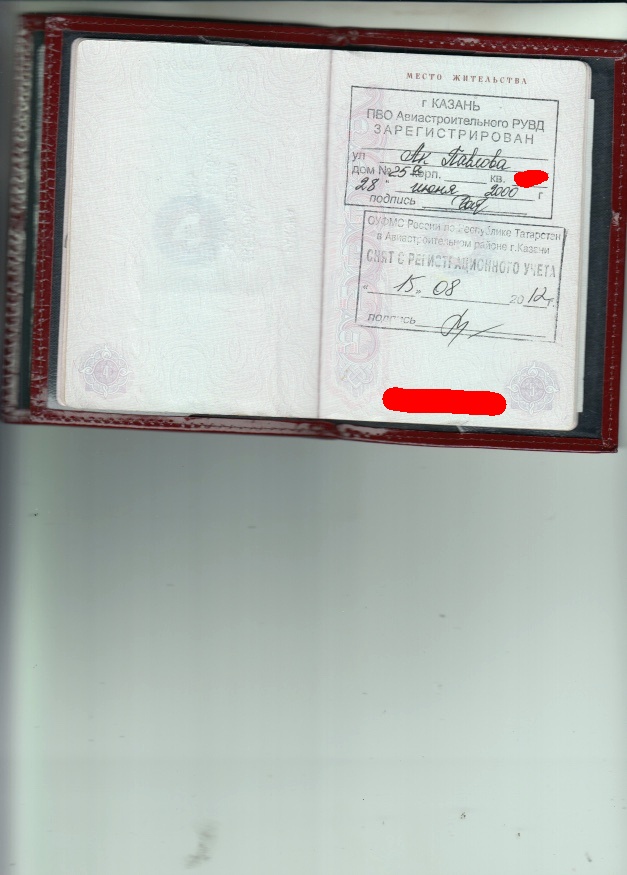 МЕСТО ЖИТЕЛЬСТВА
г КАЗАНЬ
ПВО Авиастроительного РУВД
ЗАРЕГИСТРИРОВАН
ул Ак. Павлова
дом № 25 корп. кв.
28 " июня 2000 г
подпись
ОУФМС России по Республике Татарстан
в Авиастроительном районе г.Казани
СНЯТ С РЕГИСТРАЦИОННОГО УЧЕТА
« 15 » 08 2012 г.
подпись